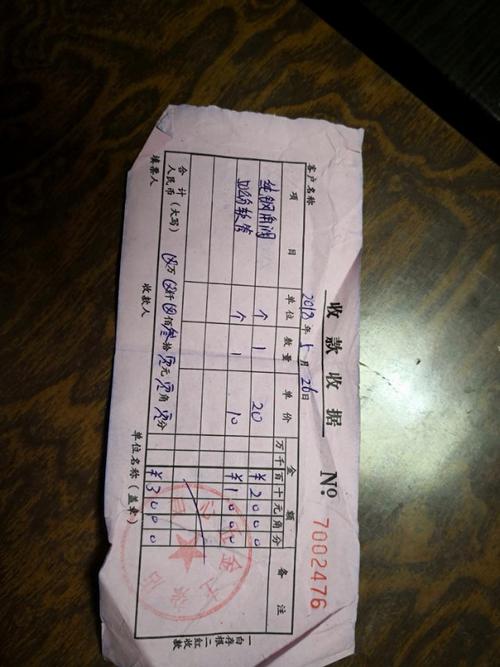 收款收据 № 7002476
客户名称 2018年5月26日
项目 单位 数量 单价 金额 备注
万千百十元角分
纯钢角阀 个 1 20 ¥2000
软管 个 1 10 ¥1000
合计
人民币(大写) 万 仟 佰 叁拾 元 角 分 ¥3000
填票人 收款人 单位名称(盖章)
一白存根 二红收款